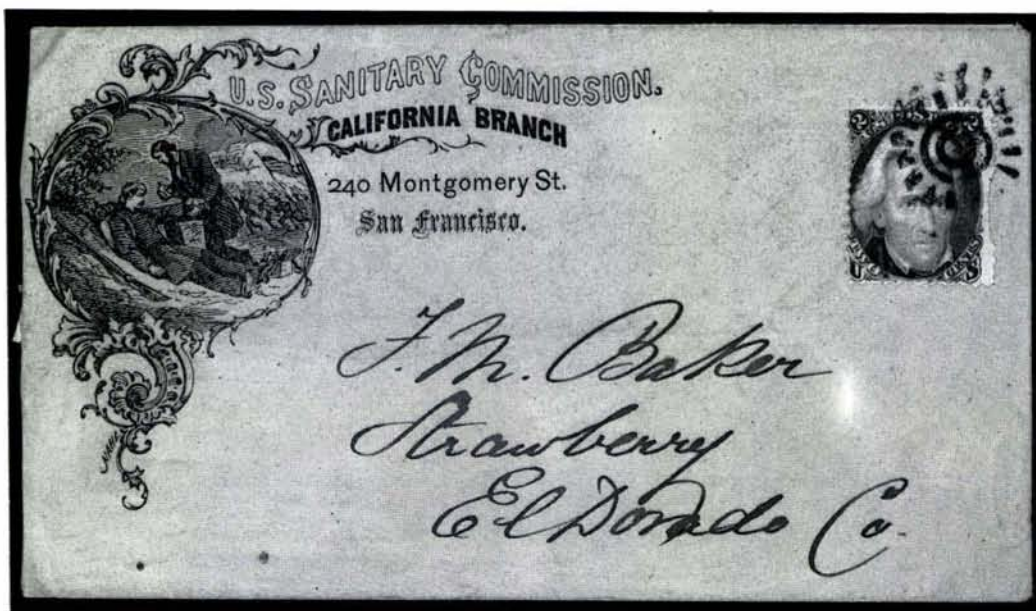 U.S. SANITARY COMMISSION.
CALIFORNIA BRANCH
240 Montgomery St.
San Francisco.
2 2
U S
F. M. Baker
Strawberry
El Dorado Co.